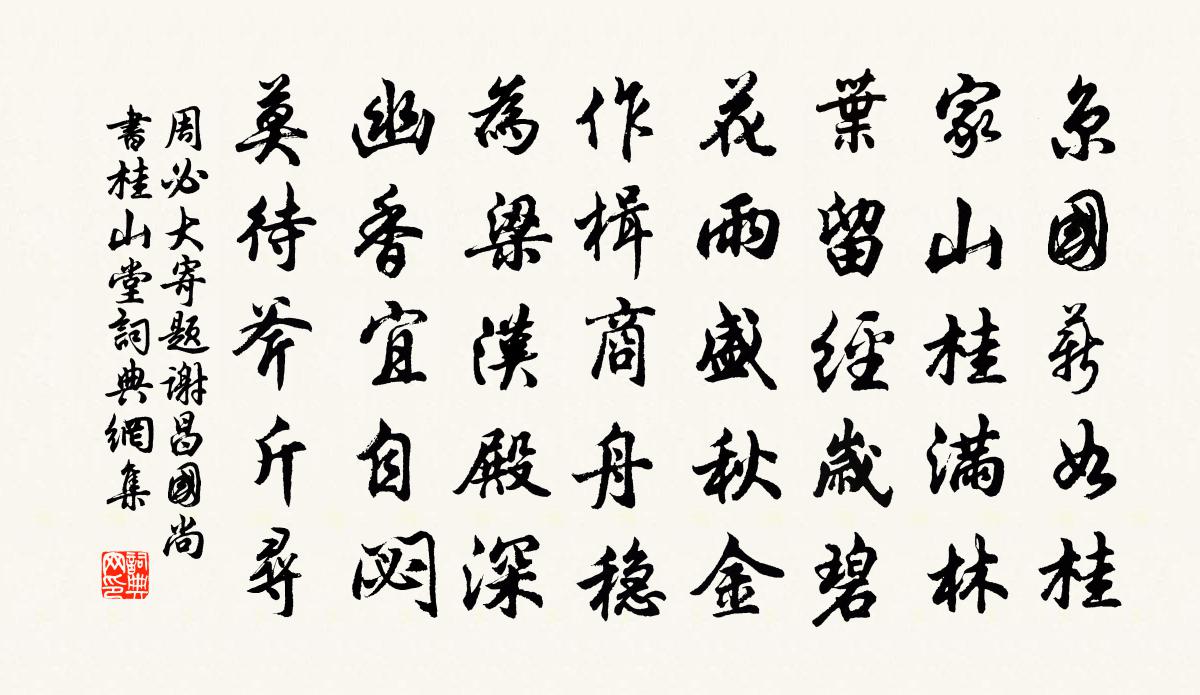 京國薪如桂
家山桂滿林
葉留經歲碧
花雨盛秋金
作楫商舟穩
為梁漢殿深
幽香宜自閟
莫待斧斤尋
周必大寄題謝昌國尚
書桂山堂詞典網集
詞典网印